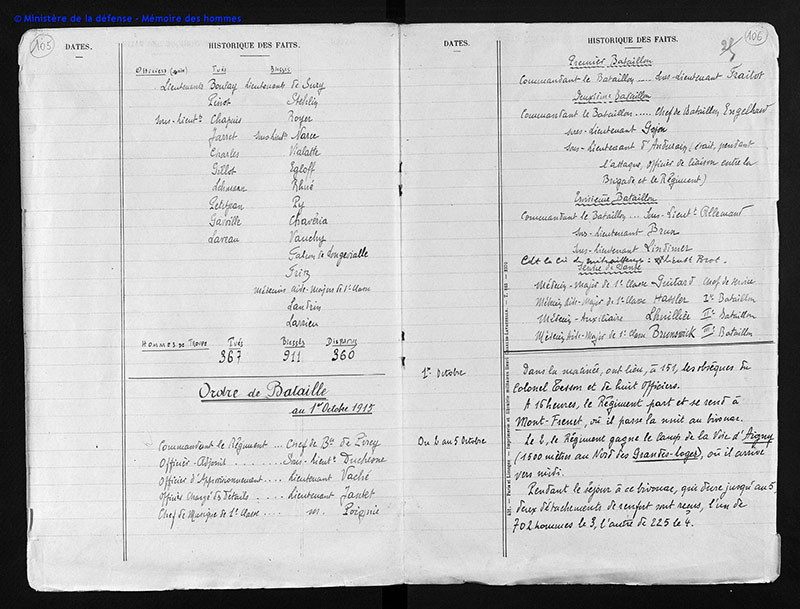 © Ministère de la défense - Mémoire des hommes
105
DATES.
HISTORIQUE DES FAITS.
Officiers Tués Blessés
Lieutenants Boutay Lieutenants de Suzy
Pinot Stehlin
Sous-Lieutts Chapuis Royer
Jarret Sous-Lieutts Narce
Charles Walatte
Gillot Egloff
Rhué
Petitjean Py
Gaville Chavéria
Laveau Vauchy
Galron de Longevialle
Médecins aide-majors de 1e Classe
Landrin
Larrieu
Hommes de Troupe Tués Blessés Disparus
367 911 360
Ordre de Bataille
au 1er Octobre 1915
Commandant le Régiment ... Chef de Bon de Pirey
Officier-Adjoint ...... Sous-Lieutt Duchesne
Officier d'Approvisionnement .... Lieutenant Vaché
Officier Chargé des Détails ...... Lieutenant Jantet
Chef de Musique de 1e Classe ..... m. Poignie
106
25
DATES.
HISTORIQUE DES FAITS.
Premier Bataillon
Commandant le Bataillon .... Sous-Lieutenant Frailot
Deuxième Bataillon
Commandant le Bataillon ..... Chef de Bataillon Engelhard
Sous-Lieutenant Gojon
Sous-Lieutenant d'Andurain (était, pendant
l'attaque, officier de liaison entre la
Brigade et le Régiment)
Troisième Bataillon
Commandant le Bataillon ... Sous-Lieutt Allemant
Sous-Lieutenant Brun
Sous-Lieutenant Lindimer
Cdt la Cie de mitrailleuses :
Service de Santé
Médecin-Major de 1e Classe Guitard Chef de service
Médecin Aide-Major de 1e Classe Hassler Ier Bataillon
Médecin-Auxiliaire Lhuillier IIe Bataillon
Médecin Aide-Major de 1e Classe Brunswick IIIe Bataillon
1er Octobre
Dans la matinée, ont lieu, à 151, les obsèques du
Colonel Tesson et de huit officiers.
A 16 heures, le Régiment part et se rend à
Mont-Frenet, où il passe la nuit au bivouac.
Du 2 au 5 Octobre
Le 2, le Régiment gagne le Camp de la Voie d'Aigny
(1500 mètres au Nord des Grandes-Loges), où il arrive
vers midi.
Pendant le séjour à ce bivouac, qui dure jusqu'au 5,
deux détachements de renfort sont reçus, l'un de
702 hommes le 3, l'autre de 225 le 4.